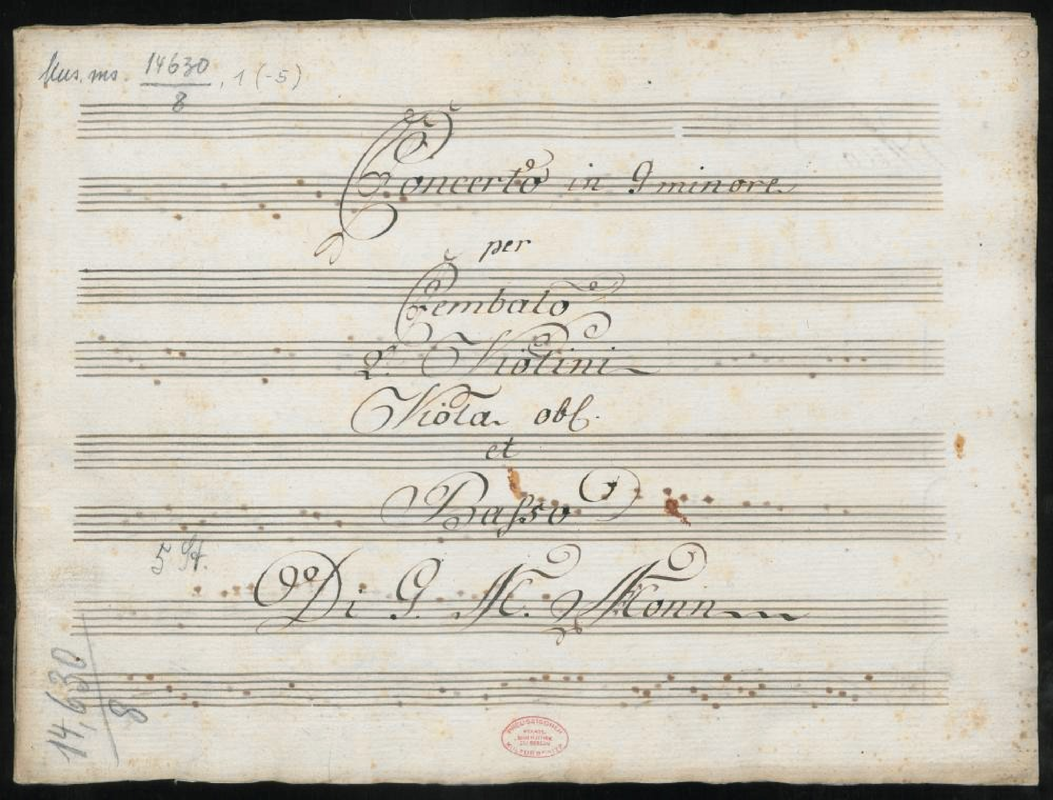 Mus. ms. 14630/8, 1 (-5)
Concerto in G minore
per
Cembalo
2. Violini
Viola obl.
et
Basso
5 St.
Di G. M. Monn
14,630
8
PREUSSISCHER
KULTURBESITZ